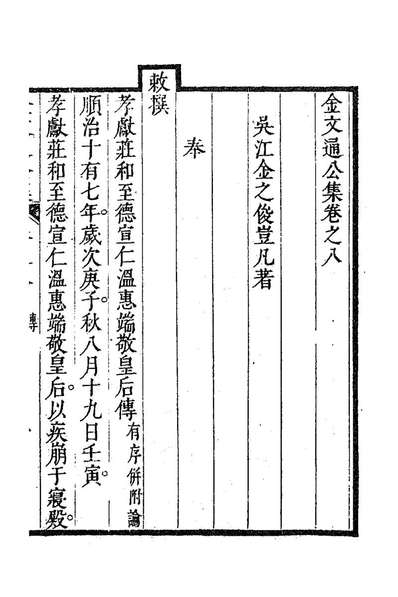 金文通公集卷之八
吳江金之俊豈凡著
奉
敕撰
孝獻莊和至德宣仁溫惠端敬皇后傳有序併附論
順治十有七年。歲次庚子。秋八月十九日壬寅。
孝獻莊和至德宣仁溫惠端敬皇后。以疾崩于寢殿。